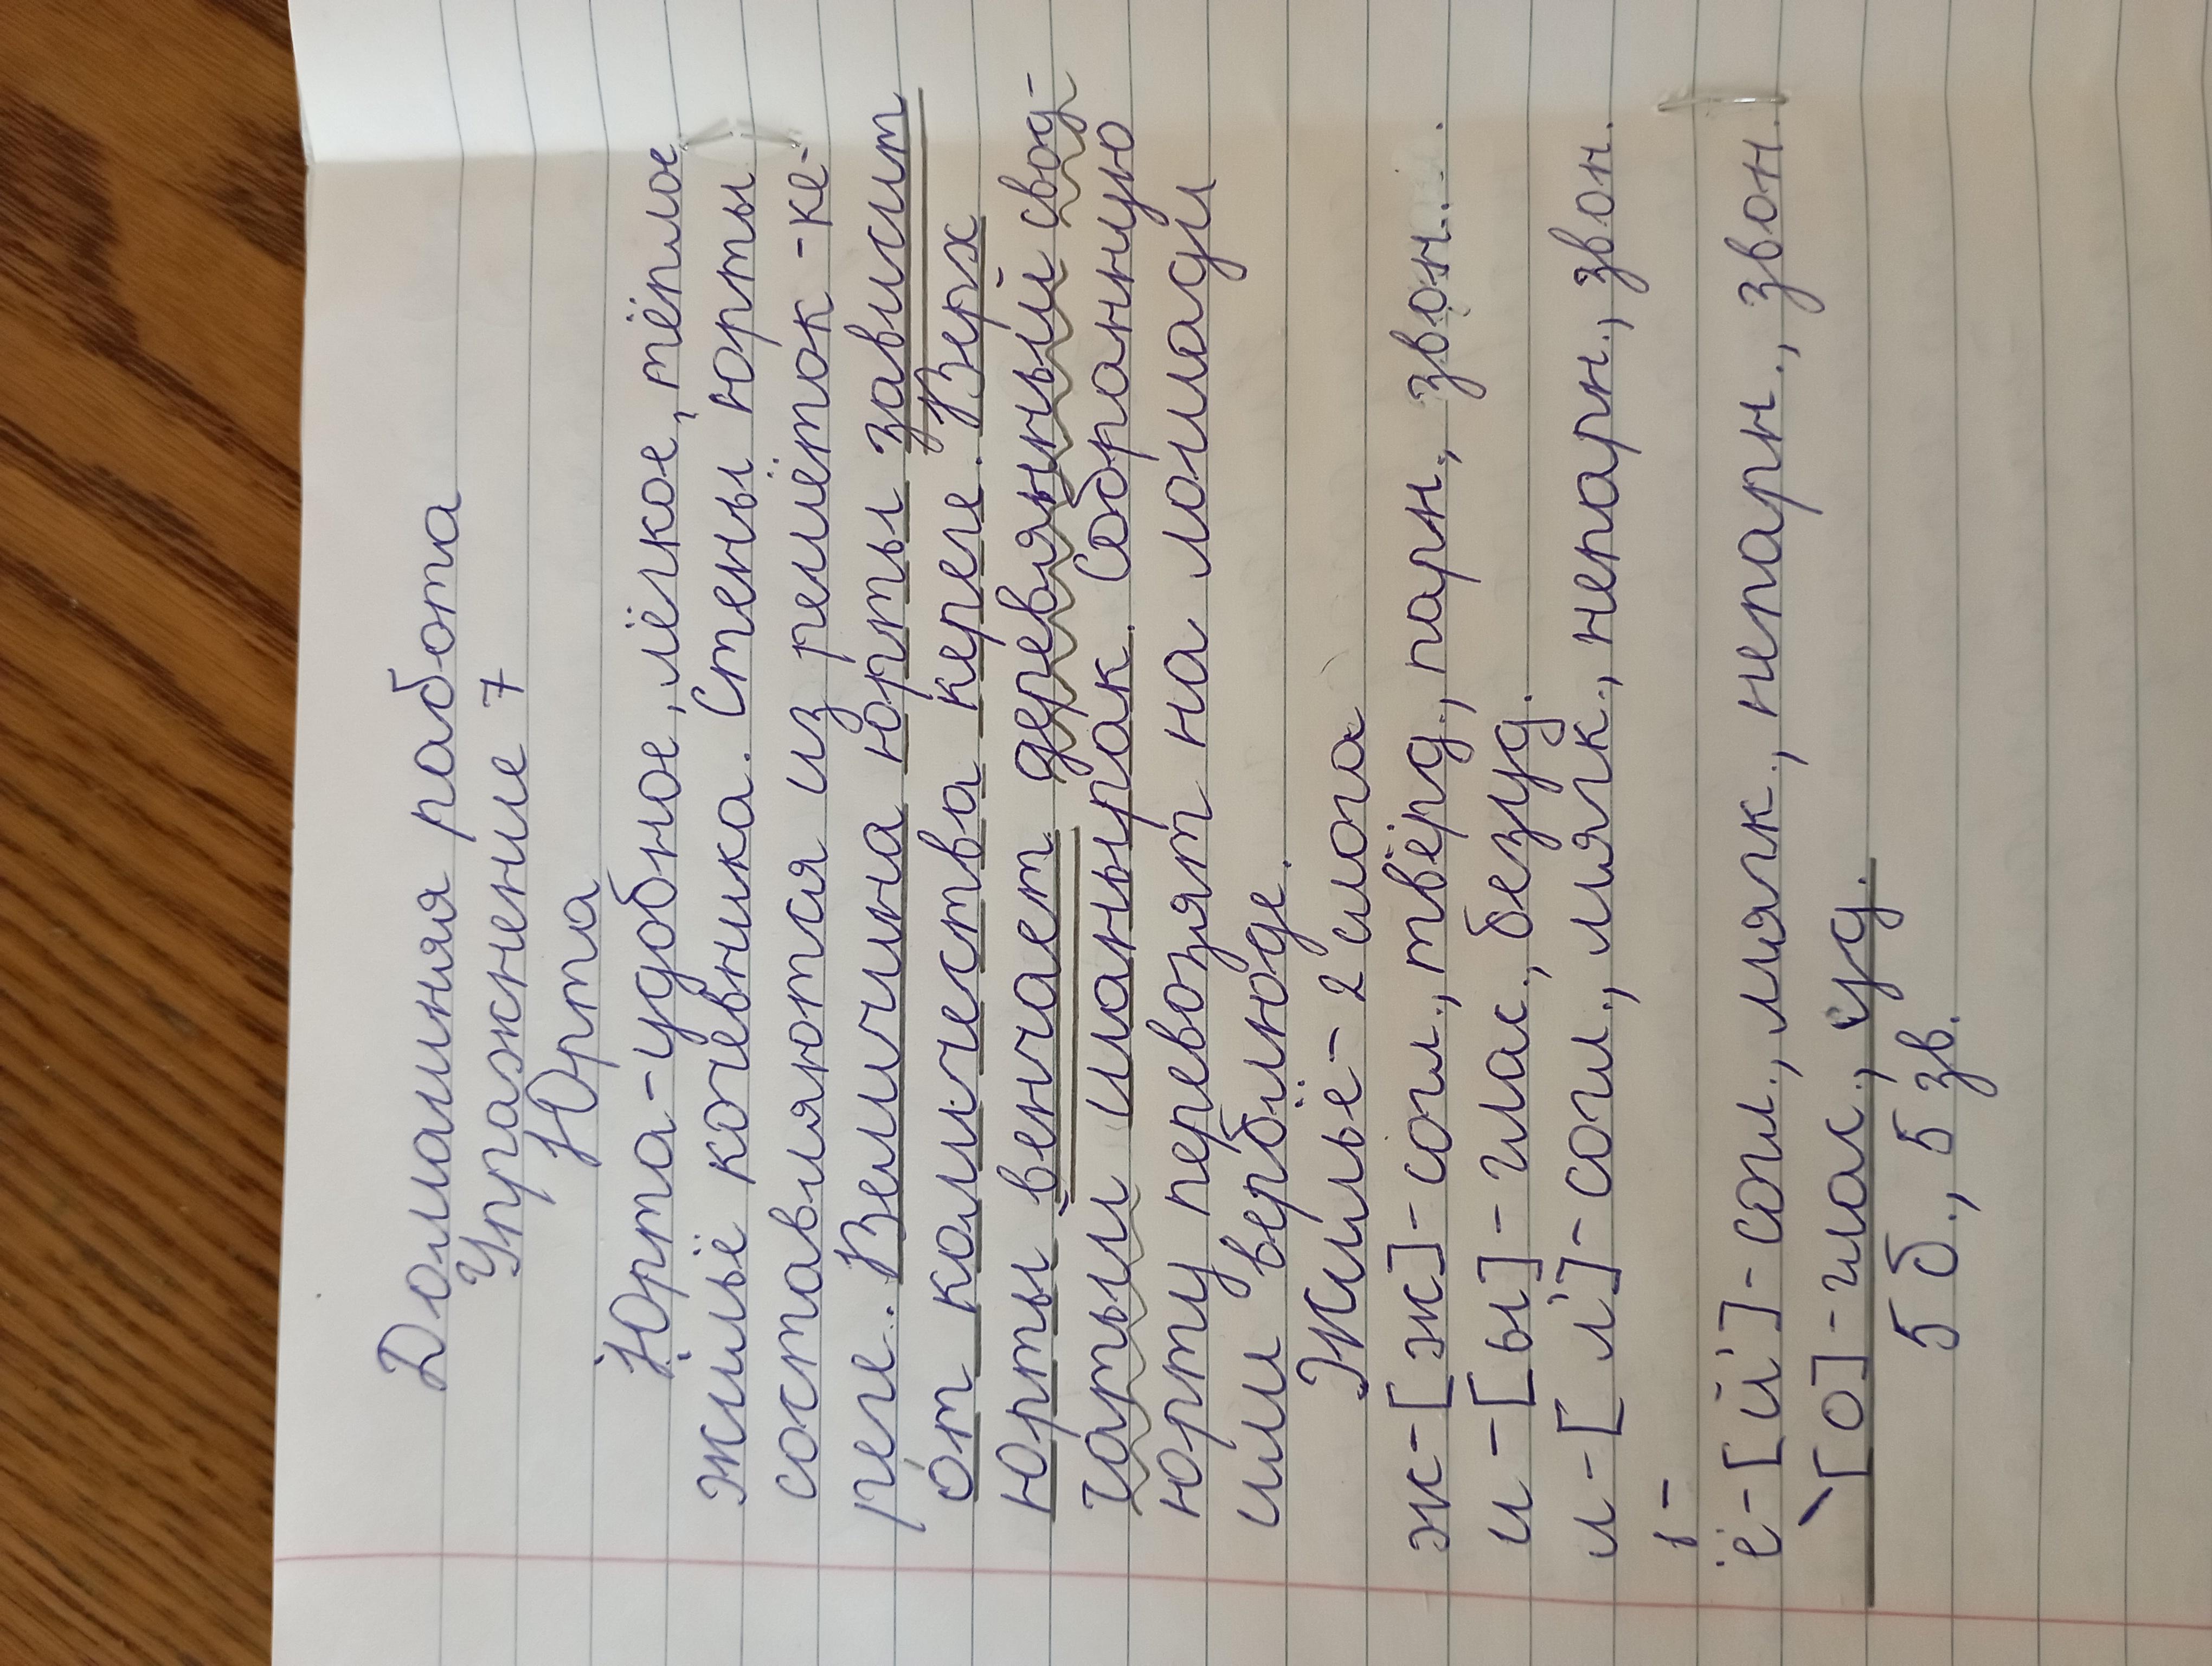 Домашняя работа
Упражнение 7
Юрта
Юрта-удобное, лёгкое, тёплое
жильё кочевника. Стены юрты
составляются из решёток -ке-
реге. Величина юрты зависит
от количества кереге. Верх
юрты венчает деревянный свод-
чатый шанырак. Собранную
юрту перевозят на лошади
или верблюде.
Жильё-2 слога
ж-[ж]-согл., твёрд., парн., звон.
и-[ы]-глас., безуд.
л-[л']-согл., мягк., непарн., звон.
ь-
ё-[й']-согл., мягк., непарн., звон.
\[о]-глас., уд.
5 б., 5 зв.